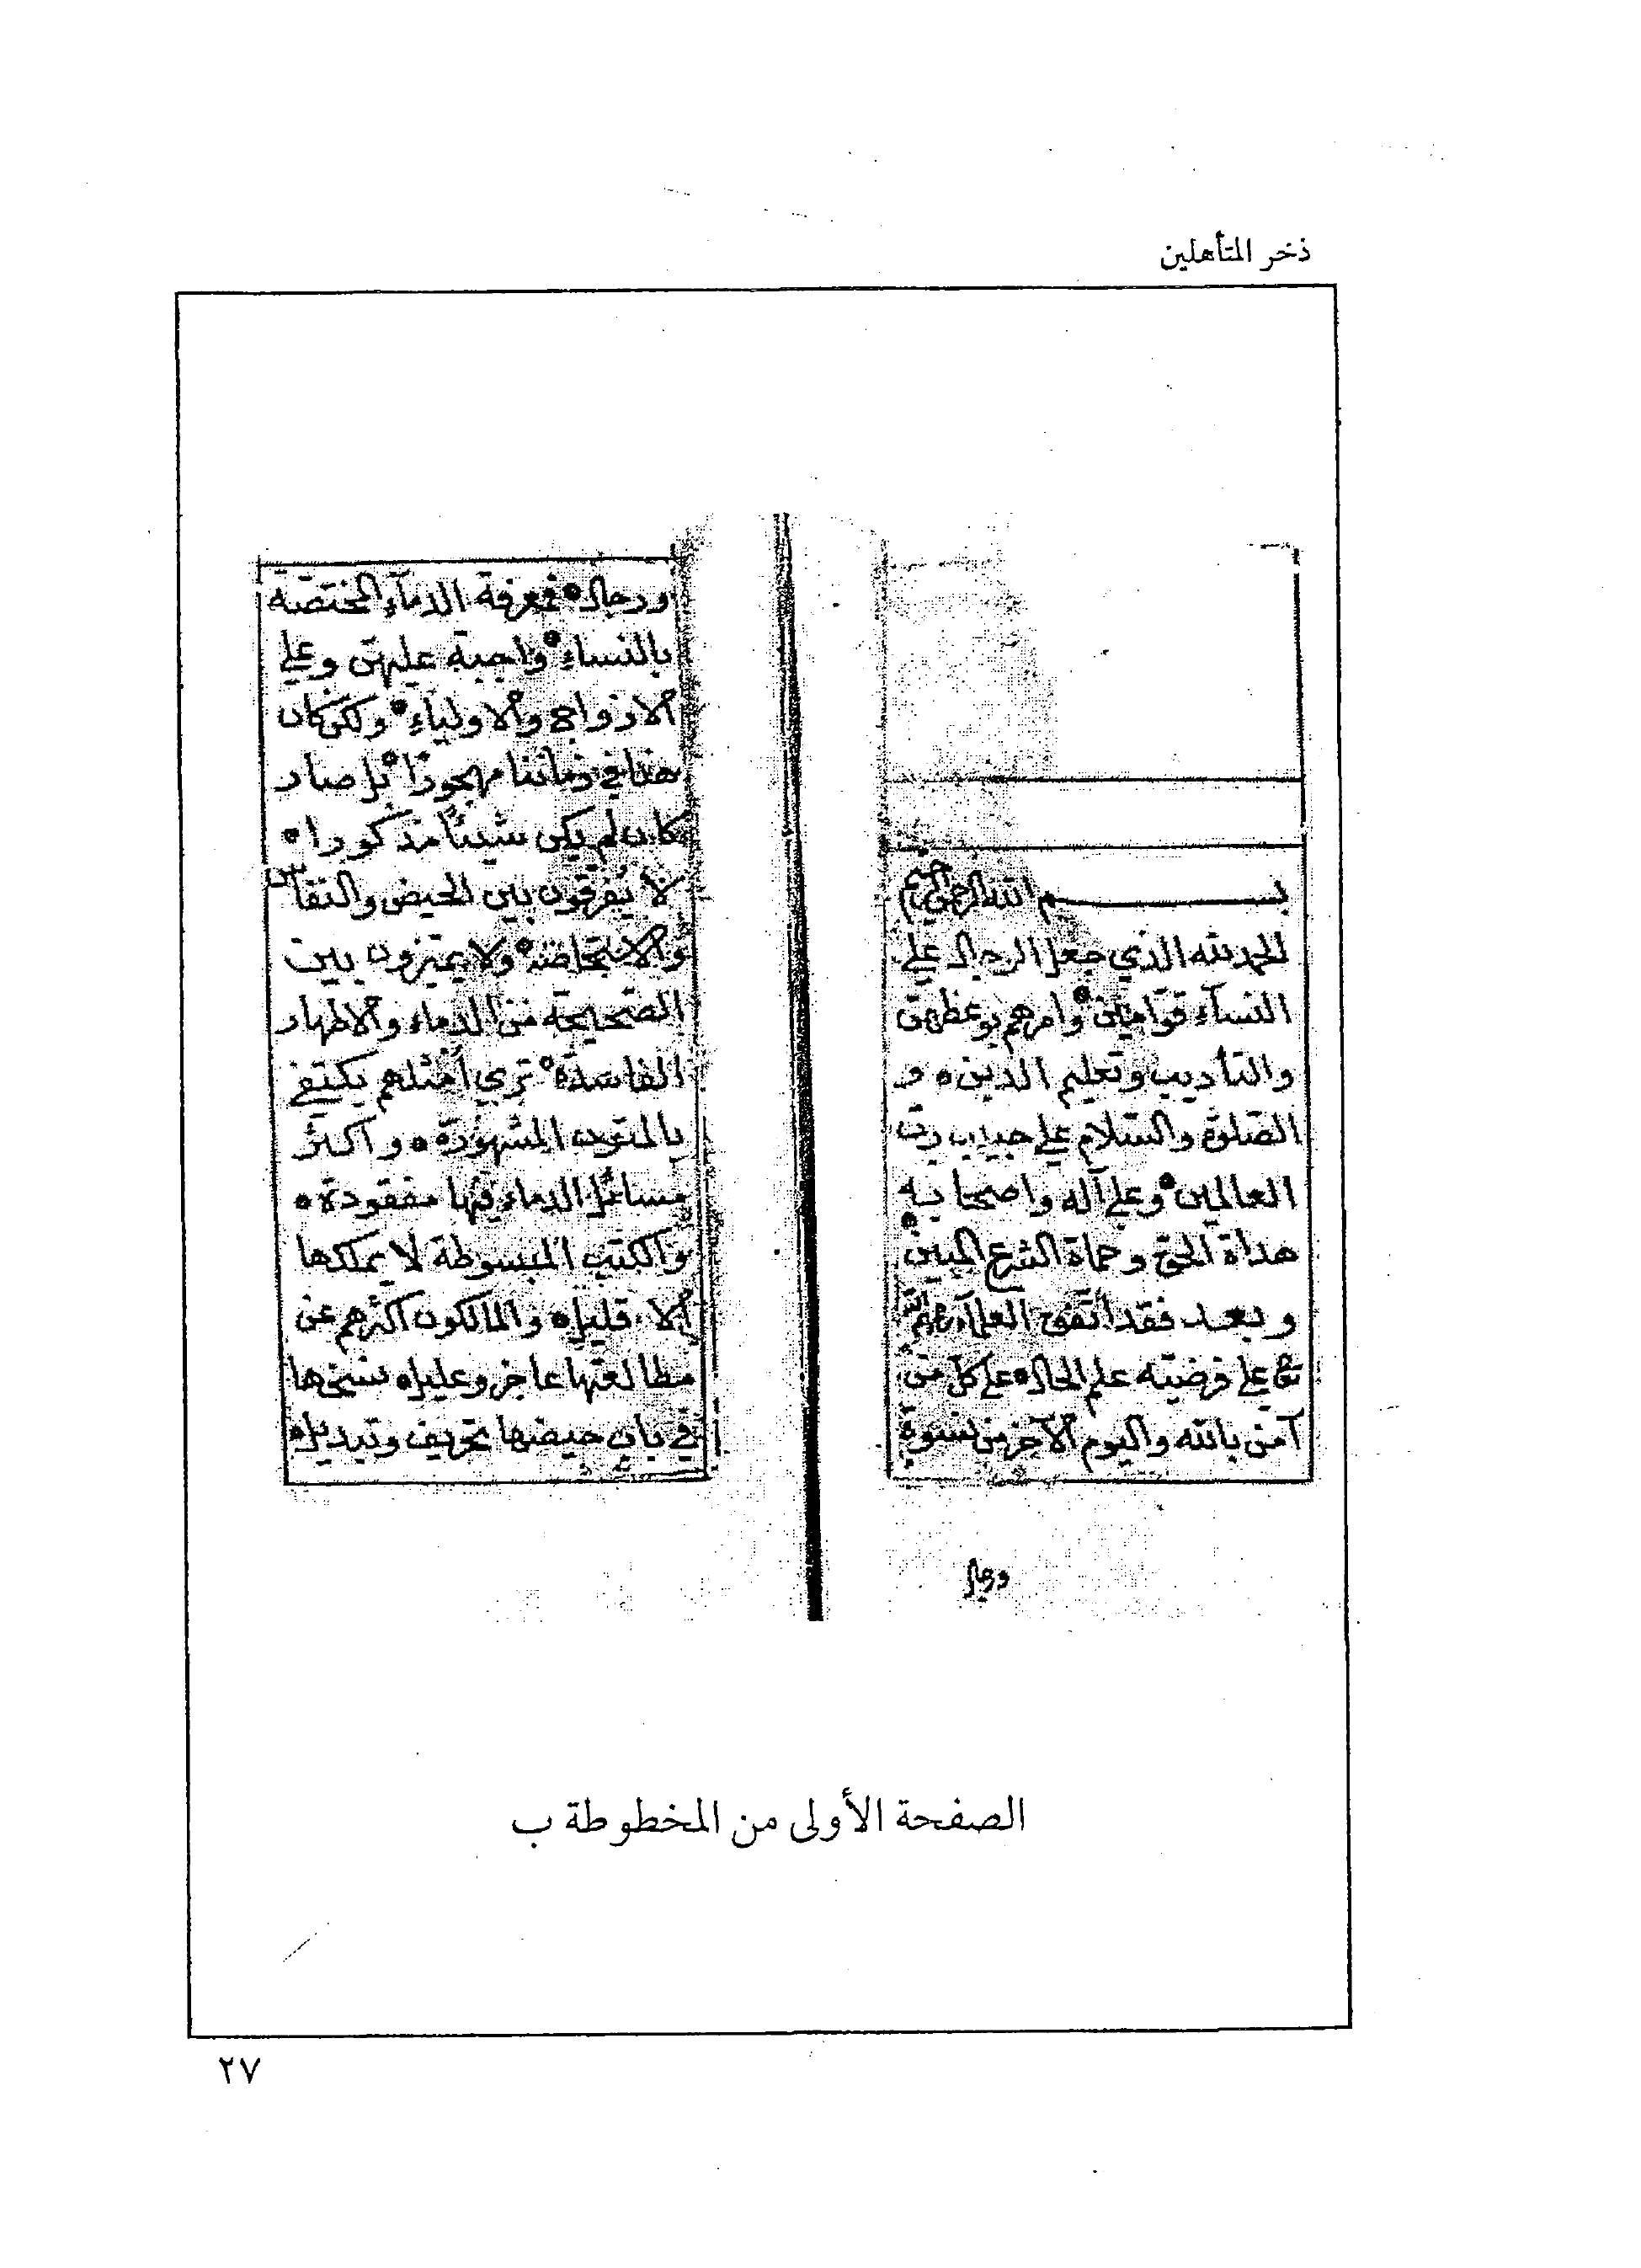 ذخر المتأهلين
بسم الله الرحمن الرحيم
الحمد لله الذي جعل الرجال علي
النسآء قوّامين وامرهم بوعظهنّ
والتأديب وتعليم الدين و
الصّلوة والسّلام علي حبيب ربّ
العالمين وعلي آله واصحابه
هداة الحق وحماة الشرع المبين
وبعد فقد اتّفق العلمآء
علي فرضيّة علم الحال علي كل من
آمن بالله واليوم الآخر من نسوة
ورجال
ورجال فمعرفة الدمآء المختصّة
بالنساء واجبة عليهنّ وعلي
الازواج والاوليآء ولكن كان
هذا في زماننا مهجورًا بل صار
كان لم يكن شيئًا مذكورا
لا يُفرّقون بين الحيض والنفاس
والاستحاضة ولا يميّزون بين
الصّحيحة من الدماء والاطهار
الفاسدة تري أمثلهم يكتفي
بالمتون المشهورة واكثر
مسائل الدماء فيها مفقودة
والكتب المبسوطة لا يملكها
إلا قليل والمالكون اكثرهم عن
مطالعتها عاجز وعليل واكثر نسخها
في باب حيضها تحريف وتبديل
الصفحة الأولى من المخطوطة ب
٢٧